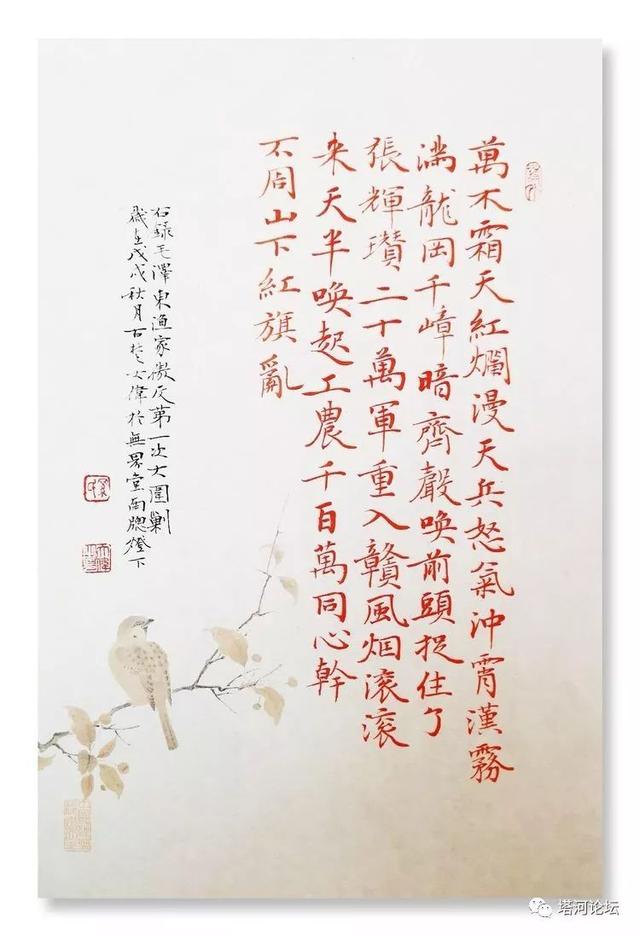 萬木霜天紅爛漫天兵怒氣沖霄漢霧
滿龍岡千嶂暗齊聲喚前頭捉住了
張輝瓚二十萬軍重入贛風烟滾滾
来天半喚起工農千百萬同心幹
不周山下紅旗亂
右録毛澤東漁家傲反第一次大圍剿
歲在戊戌秋月大偉於無界堂雨牕燈下
塔河论坛